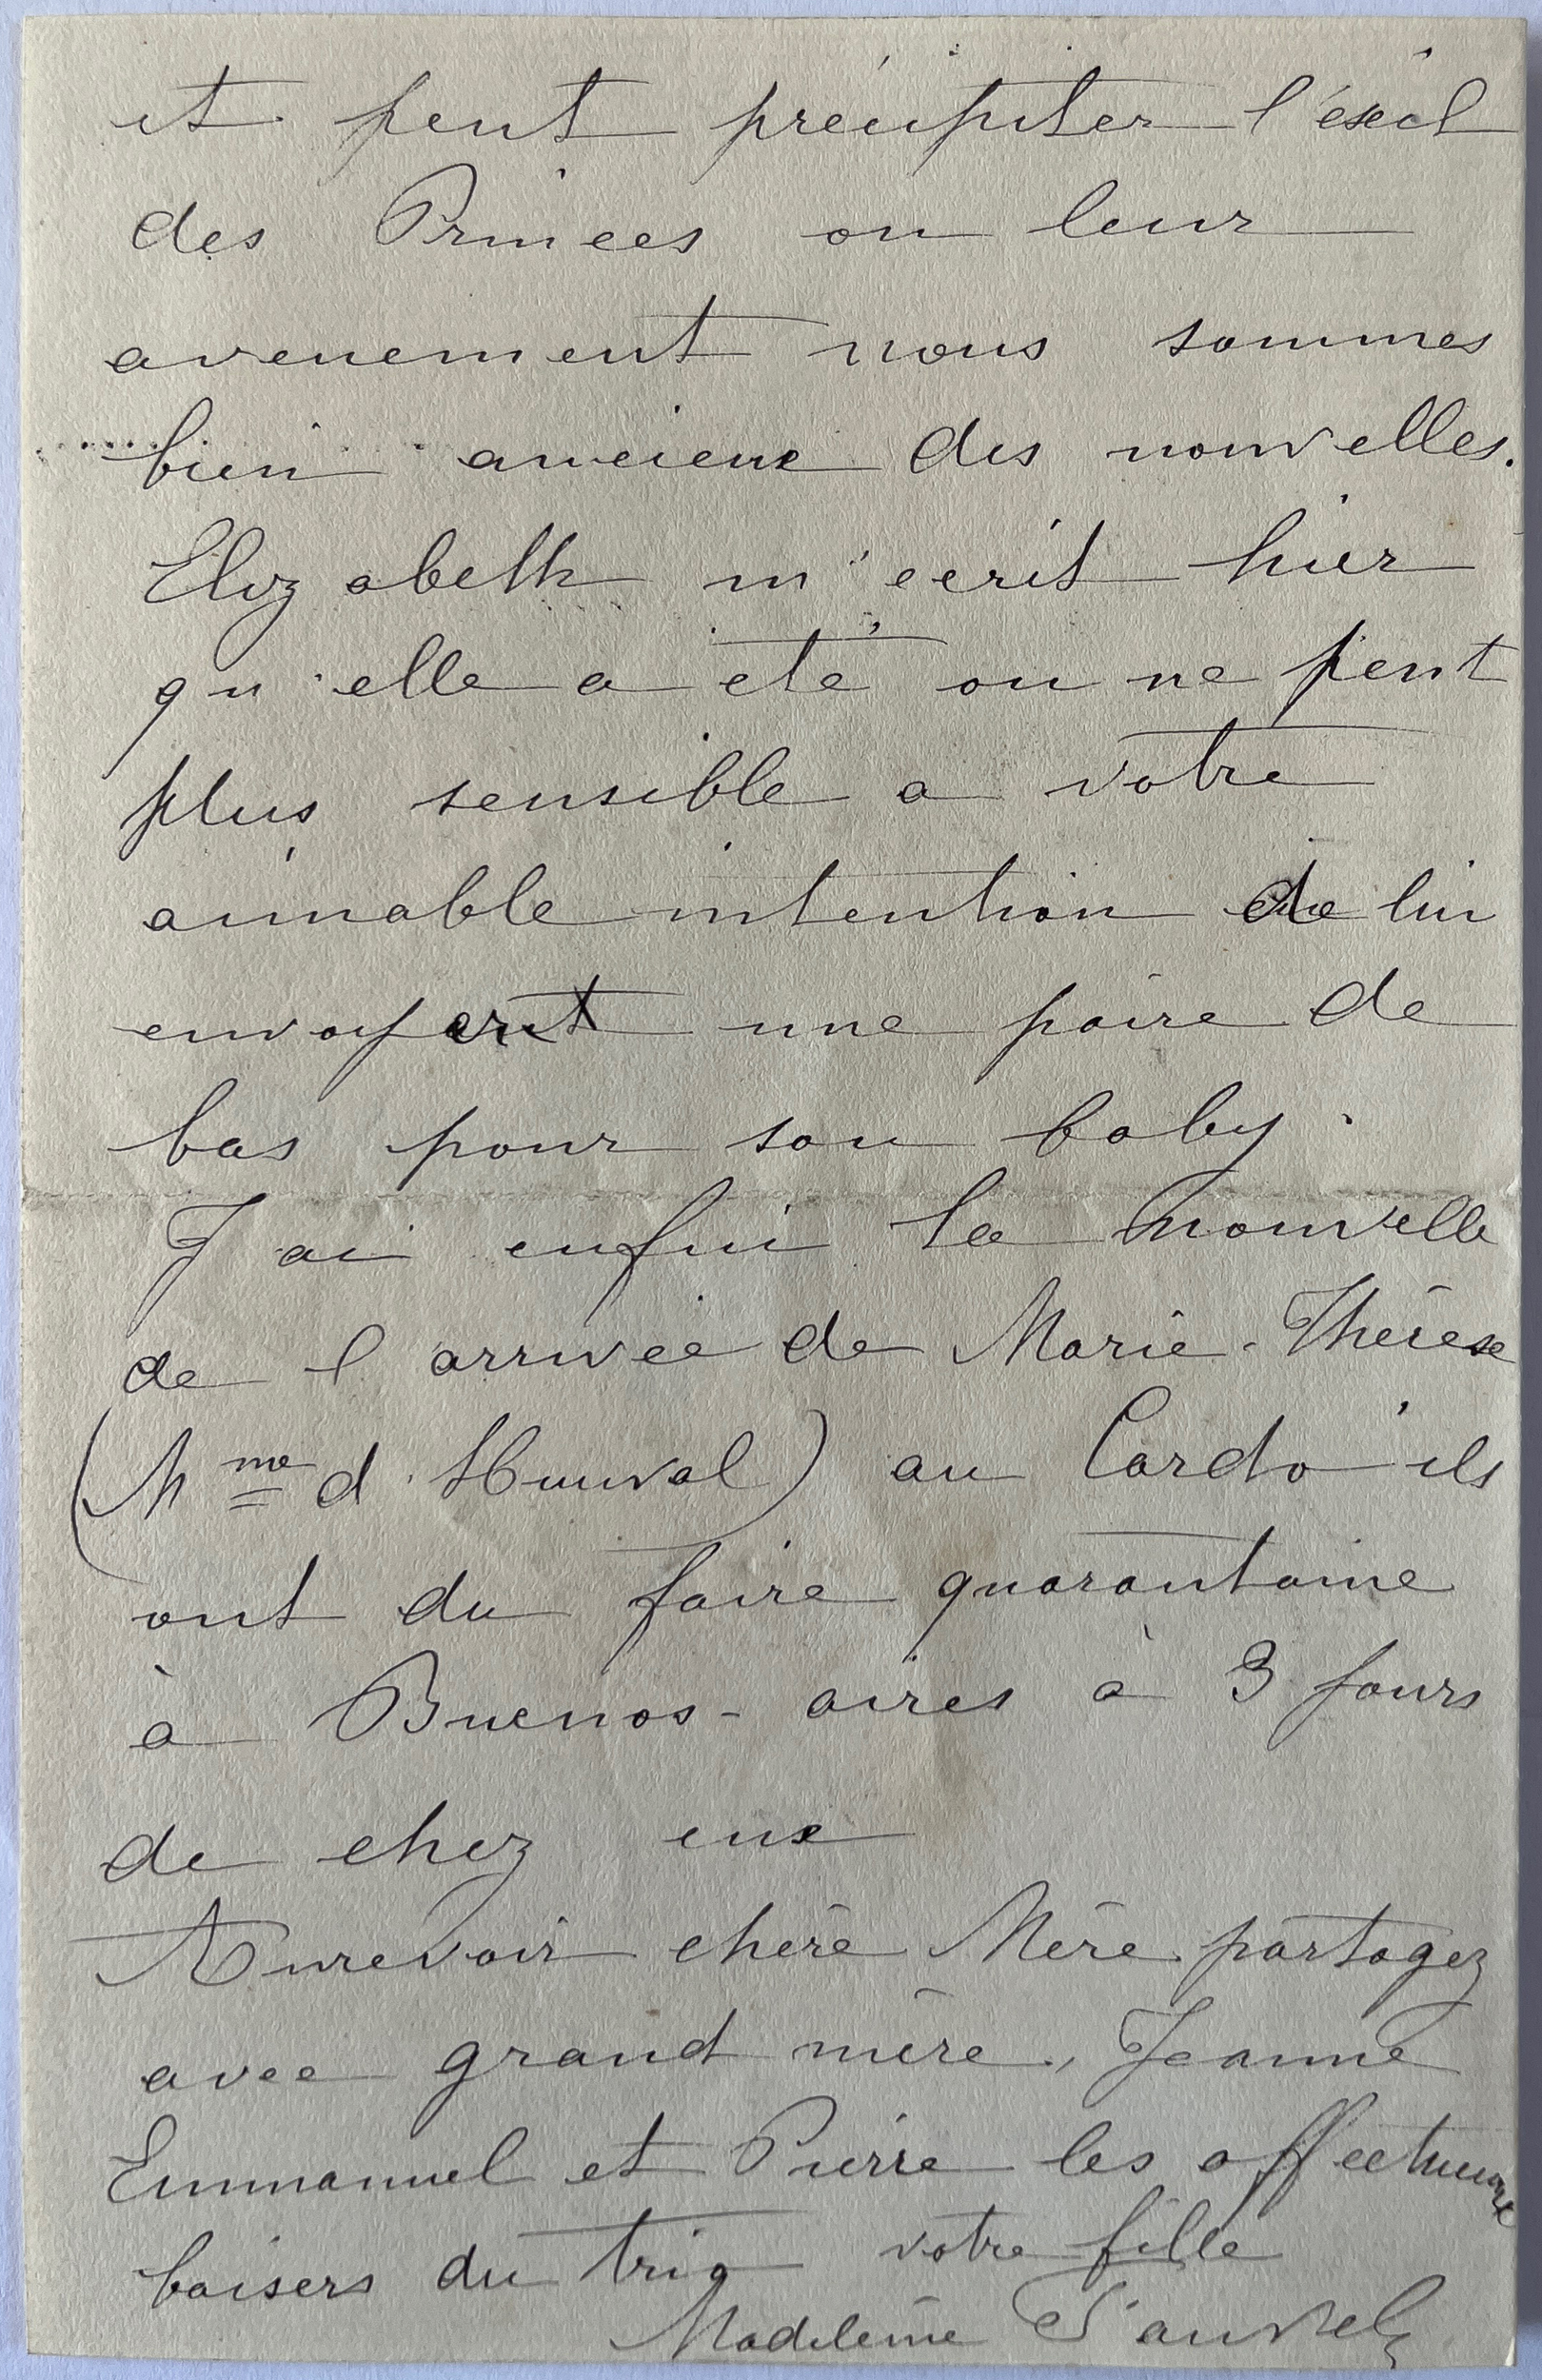 et peut précipiter l'éxil
des Princes ou leur
avenement nous sommes
bien anxieux des nouvelles.
Elizabeth m'ecrit hier
qu'elle a été on ne peut
plus sensible a votre
aimable intention de lui
envoyant une paire de
bas pour son baby.
J'ai enfin la nouvelle
de l'arrivée de Marie-Thérèse
(Mme d'Hunval) au Cardo ils
ont du faire quarantaine
à Buenos-aires à 3 jours
de chez eux
Aurevoir chère Mère partagez
avec grand mère, Jeanne
Emmanuel et Pierre les affectueux
baisers du trio votre fille
Madeleine